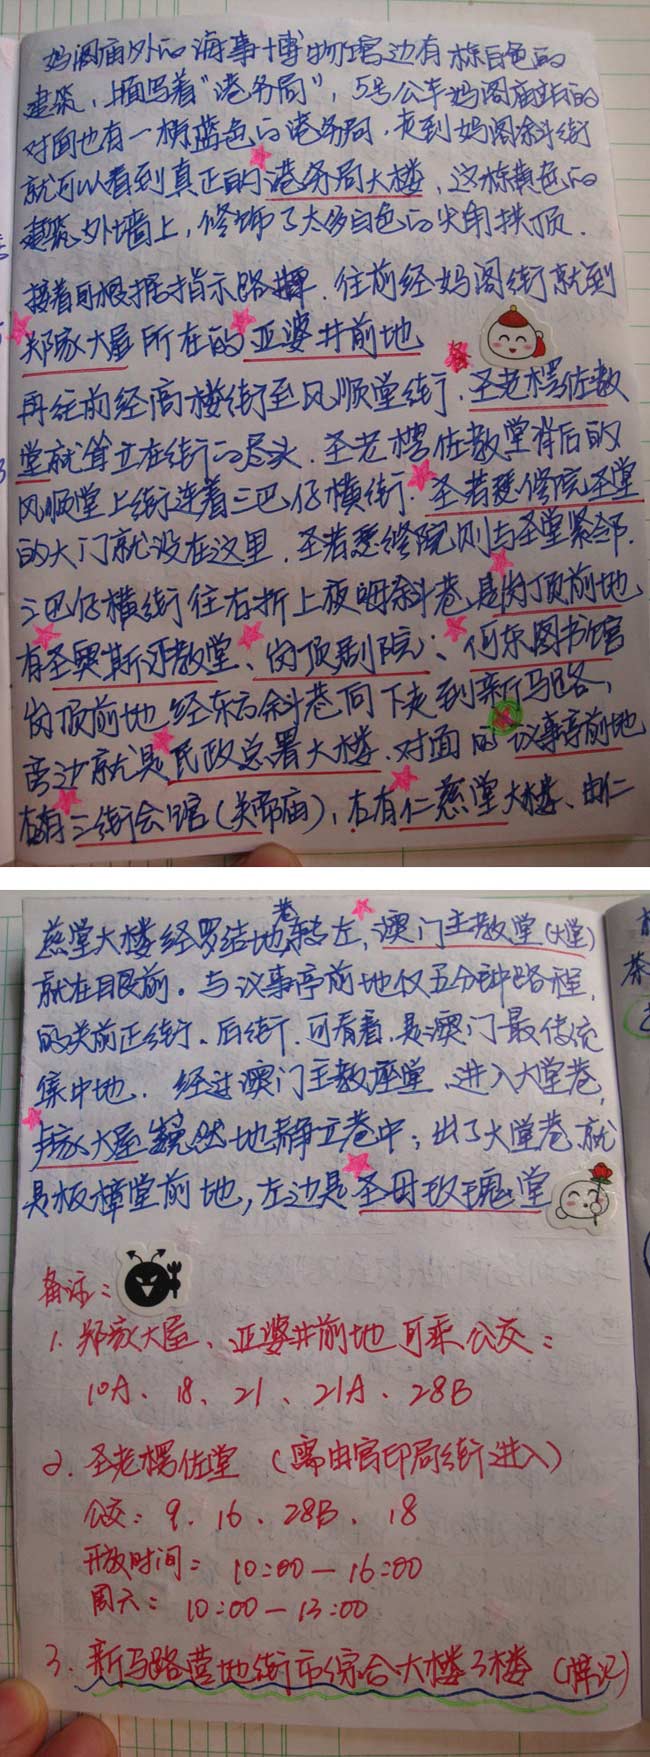 妈阁庙外的海事博物馆边有栋白色的
建筑，上面写着“港务局”，5号公车妈阁庙站的
对面也有一栋蓝色的港务局，走到妈阁斜街
就可以看到真正的港务局大楼，这栋黄色的
建筑外墙上，修饰了太多白色的尖角拱顶．
接着可根据指示路牌．往前经妈阁街就到
郑家大屋所在的亚婆井前地
再往前经高楼街至风顺堂街，圣老楞佐教
堂就耸立在街的尽头．圣老楞佐教堂背后的
风顺堂上街连着三巴仔横街．圣若瑟修院圣堂
的大门就设在这里．圣若瑟修院则与圣堂紧邻．
三巴仔横街往右折上夜呣斜巷是岗顶前地
有圣奥斯汀教堂、岗顶剧院、何东图书馆
岗顶前地经东方斜巷向下走到新马路，
旁边就是民政总署大楼．对面的议事亭前地
有三街会馆(关帝庙)，右有仁慈堂大楼、由仁
慈堂大楼经罗结地巷转左，澳门主教堂(大堂)
就在眼前。与议事亭前地仅五分钟路程，
的关前正街．后街．可看看．是澳门最传统
集中地．经过澳门主教座堂、进入大堂巷，
卢家大屋 然地静立巷中；出了大堂巷就
是板樟堂前地，左边是圣母玫瑰堂
备注：
1. 郑家大屋、亚婆井前地可乘公交：
10A、18、21、21A、28B
2. 圣老楞佐堂（需由官印局街进入）
公交：9、16、28B、18
开放时间：10:00—16:00
周六：10:00—13:00
3. 新马路营地街市综合大楼3楼